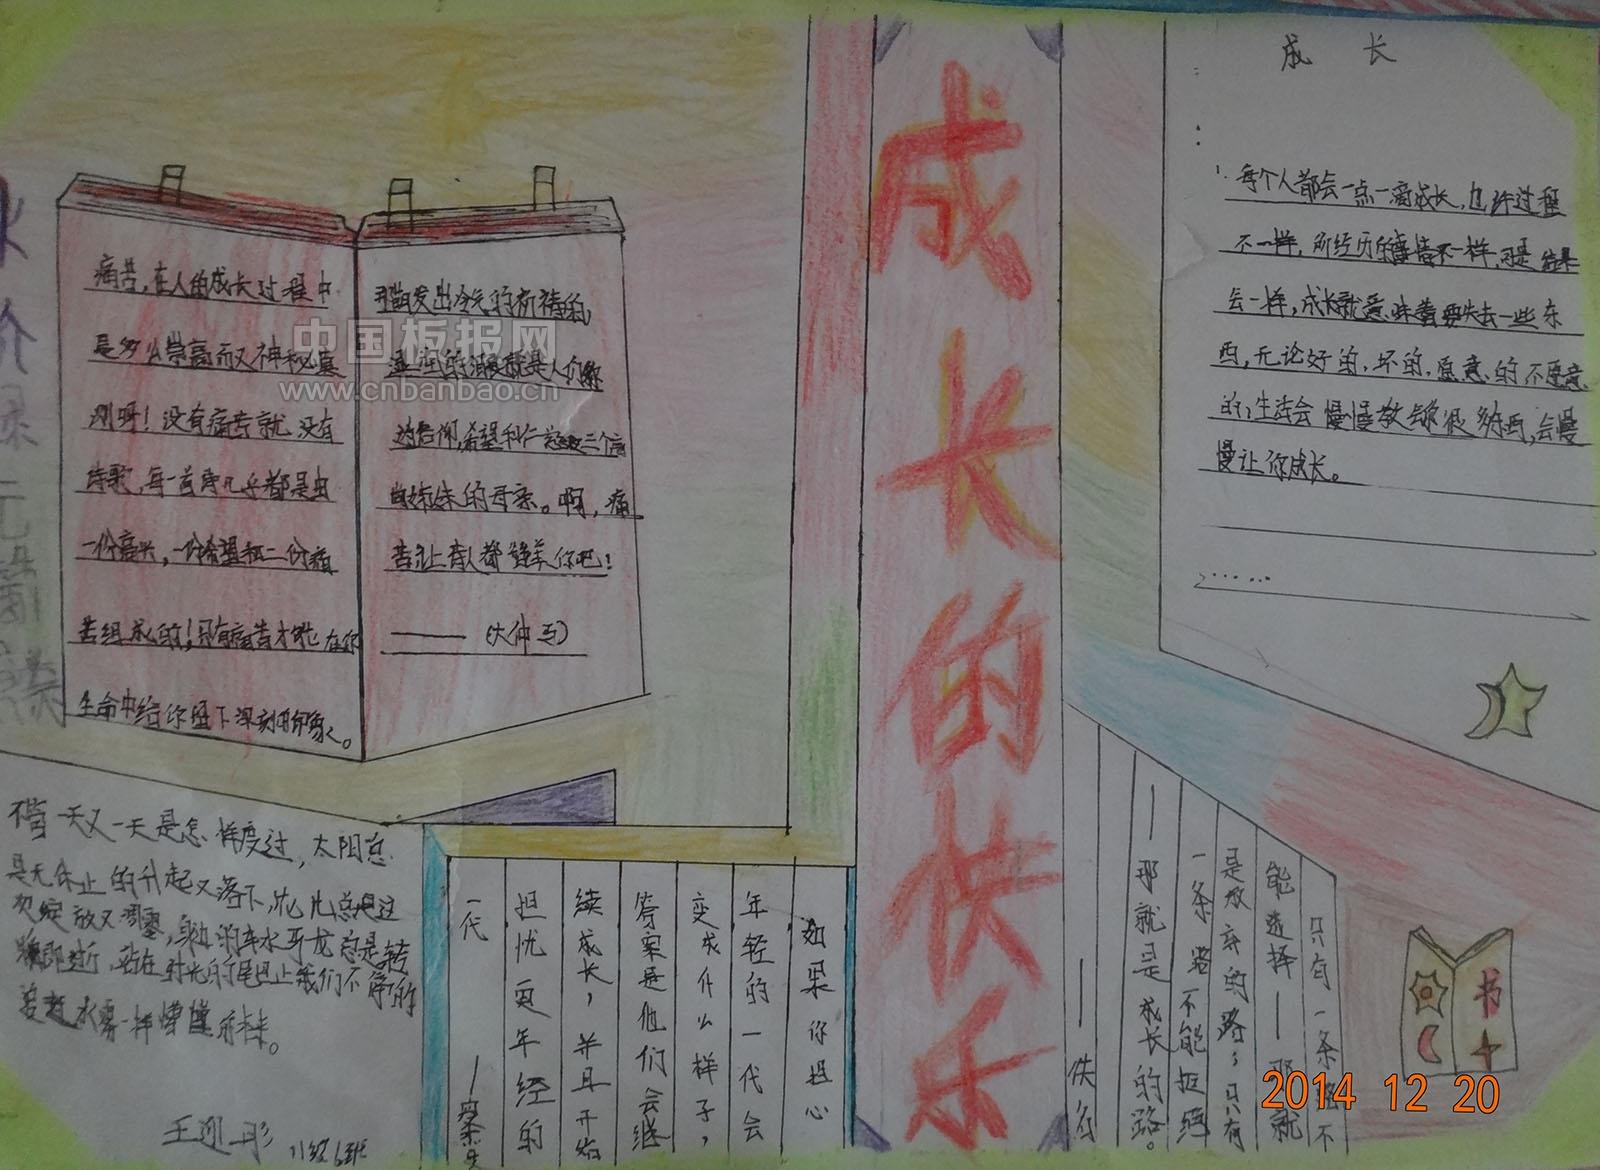 成长的快乐
成 长
每个人都会一点一滴成长,也许过程
不一样,所经历的事情不一样,可是结果
会一样,成长就意味着要失去一些东
西,无论好的,坏的,愿意的不愿意
的,生活会慢慢教给你很多东西,会慢
慢让你成长。
痛苦,在人的成长过程中
是多么崇高而又神秘
呀!没有痛苦就没有
诗歌,每一首诗几乎都是由
一份高兴,一份希望和二份痛
苦组成的!只有痛苦才能在你
生命中给你留下深刻的印象。
发出冷气的祈祷的,
湿润的眼就是人们称
为信仰,希望和仁 三个高
尚姊妹的母亲。啊,痛
苦让上 人都 你吧!
——(大仲马)
中国板报网
www.cnbanbao.cn
不管一天又一天是怎样度过,太阳总
是无休止的升起又落下,花儿总是过
次绽放又凋零,身边的车水马龙总是转
瞬即逝,站在时光的尾巴上我们不停的
水雾一样懵懂
王迎彤 八级6班
如果你担心
年轻的一代会
变成什么样子,
答案是他们会继
续成长,并且开始
担忧更年轻的
一代
只有一条路不
能选择——那就
是放弃的路;只有
一条路不能拒绝
——那就是成长的路。
——佚名
书
2014 12 20